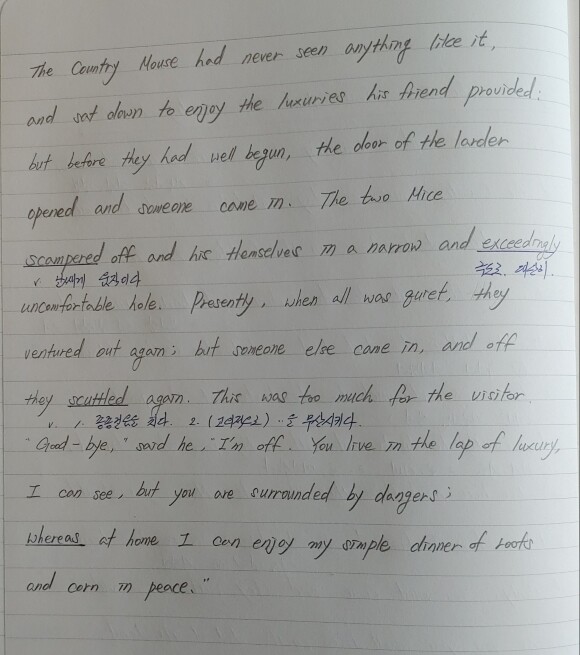 The Country Mouse had never seen anything like it,
and sat down to enjoy the luxuries his friend provided:
but before they had well begun, the door of the larder
opened and someone came in. The two Mice
scampered off and his themselves in a narrow and exceedingly
v 날쌔게 움직이다 극도로, 대단히.
uncomfortable hole. Presently, when all was quiet, they
ventured out again; but someone else came in, and off
they scuttled again. This was too much for the visitor.
v. 1. 종종걸음을 치다. 2. (고의적으로) ··을 무산시키다.
"Good-bye," said he, "I'm off. You live in the lap of luxury,
I can see, but you are surrounded by dangers;
whereas at home I can enjoy my simple dinner of roots
and corn in peace."